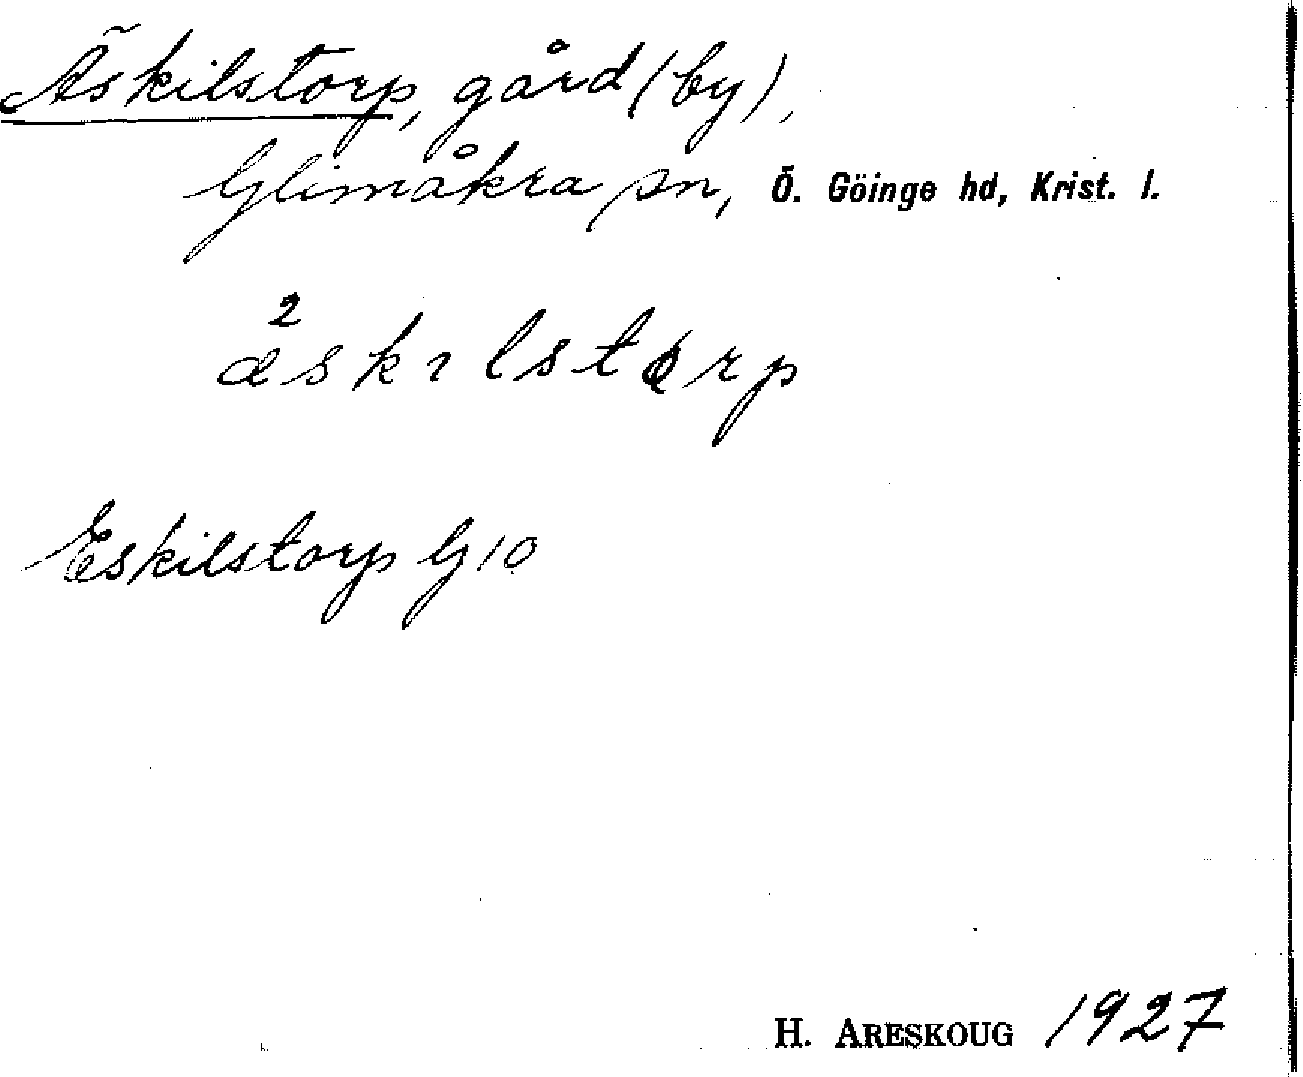 Äskilstorp, gård (by),
Glimåkra sn, Ö. Göinge hd, Krist. l.
2
æskılstǫrp
Eskilstorp G 10
H. ARESKOUG 1927